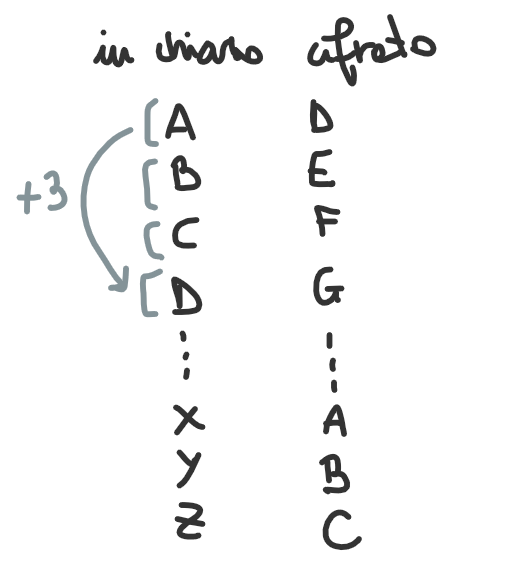 in chiaro cifrato
A D
B E
+3
C F
D G
X A
Y B
Z C